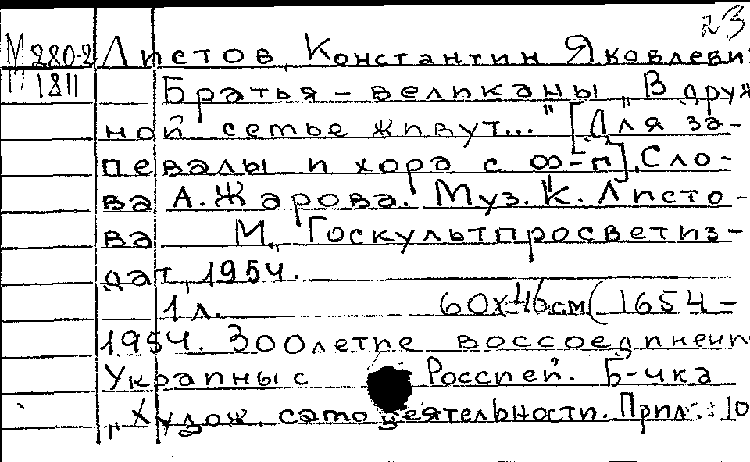 23
М 280-2 Листов, Константин Яковлеви
1811 Братья-великаны „В друж
ной семье живут..." [Для за-
певалы и хора с ф-п]. Сло-
ва А. Жарова. Муз. К. Листо-
ва М., Госкультпросветиз-
дат, 1954.
1 л. 60х46см (1654-
1954. 300летие воссоединени
Украины с Россией. Б-чка
„Худож. самодеятельности. Прил.: 10